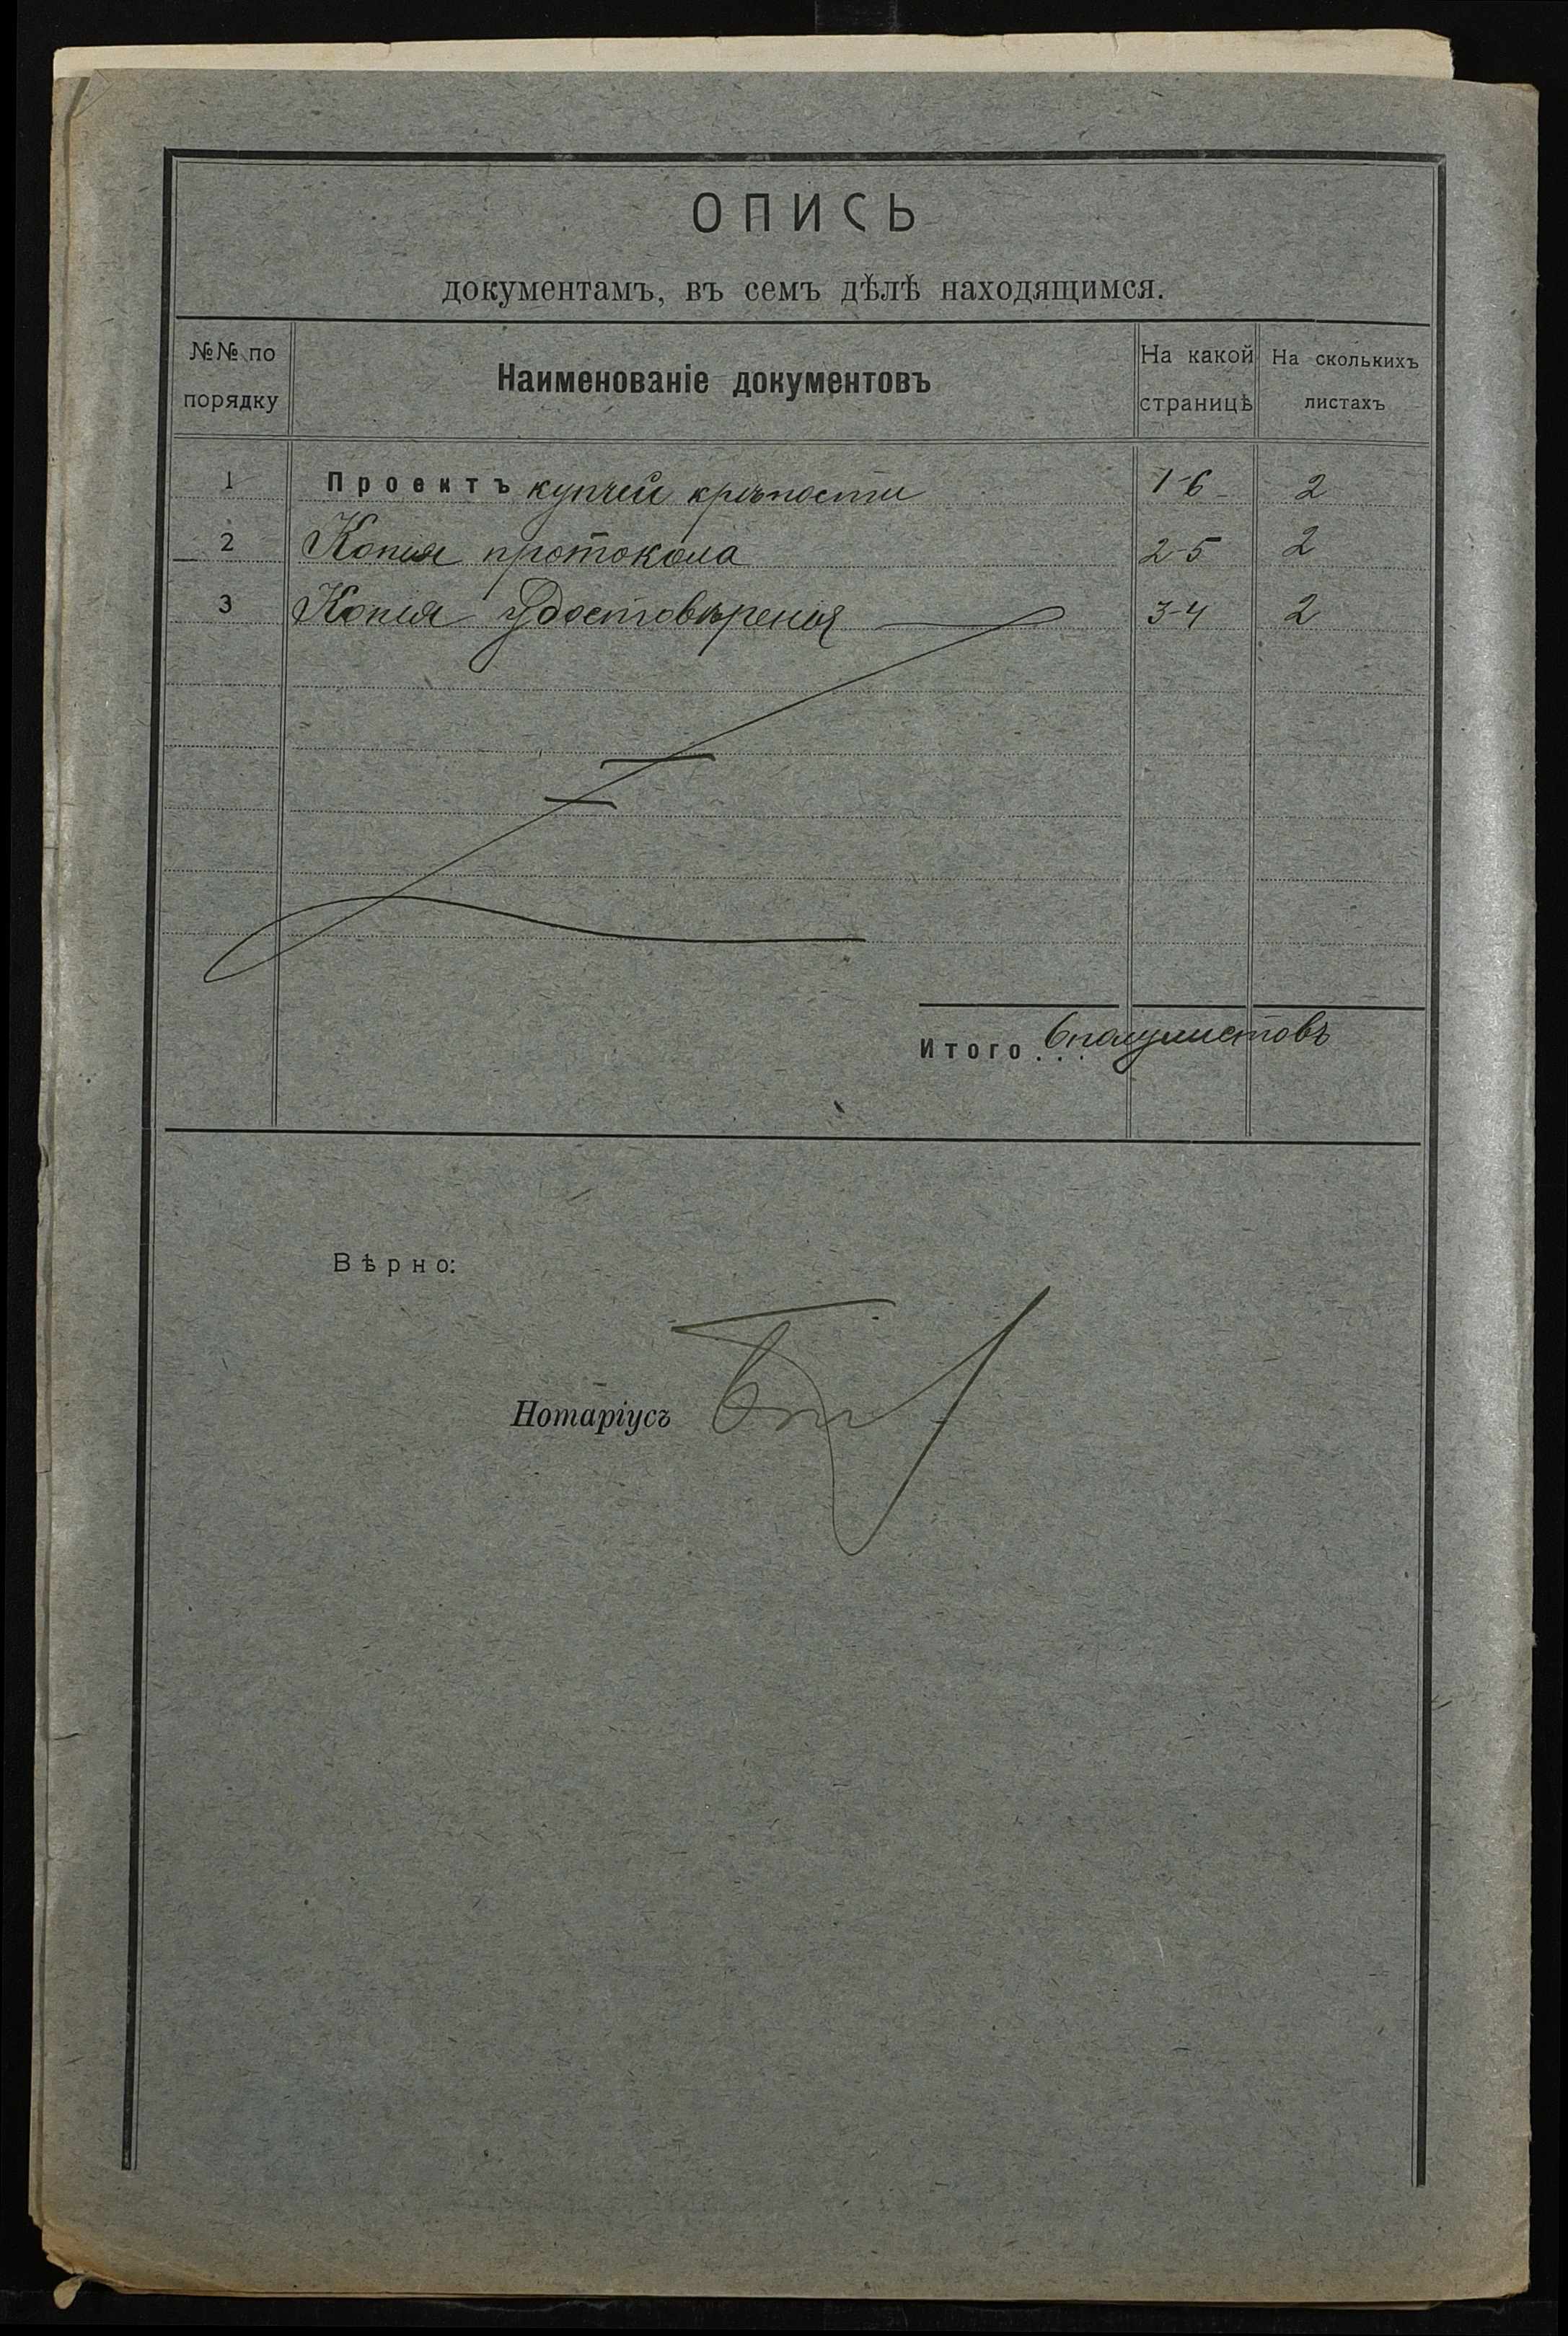 ОПИСЬ
документамъ, въ семъ дѣлѣ находящимся.
№№ по порядку Наименованіе документовъ На какой страницѣ На сколькихъ листахъ
1 Проектъ купчей крѣпости 1-6 2
2 Копія протокола 2-5 2
3 Копія Удостовѣренія 3-4 2
Итого... 6 полулистовъ
Вѣрно:
Нотаріусъ